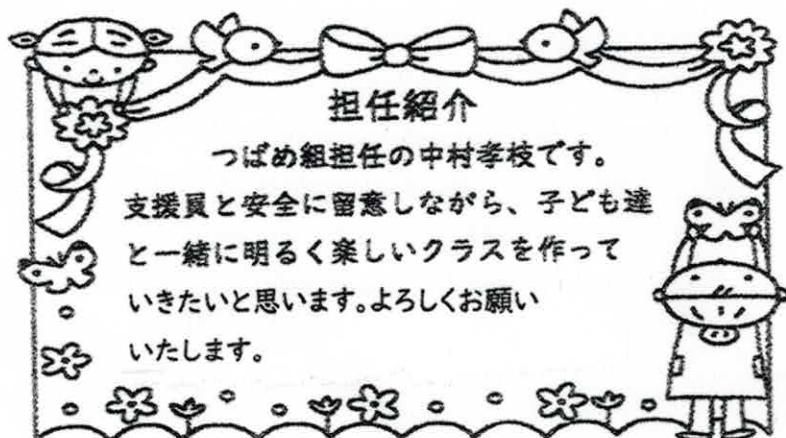 担任紹介
つばめ組担任の中村孝枝です。
支援員と安全に留意しながら、子ども達
と一緒に明るく楽しいクラスを作って
いきたいと思います。よろしくお願い
いたします。